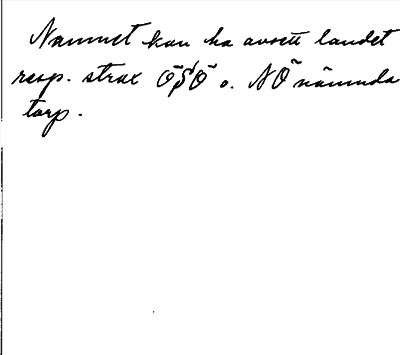 Namnet kan ha avsett landet
resp. strax ÖSÖ o. NÖ nämnda
torp.